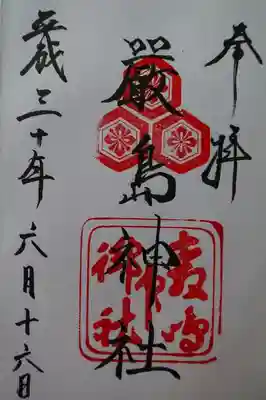 奉拝
嚴島神社
平成三十年六月十六日
嚴島神社